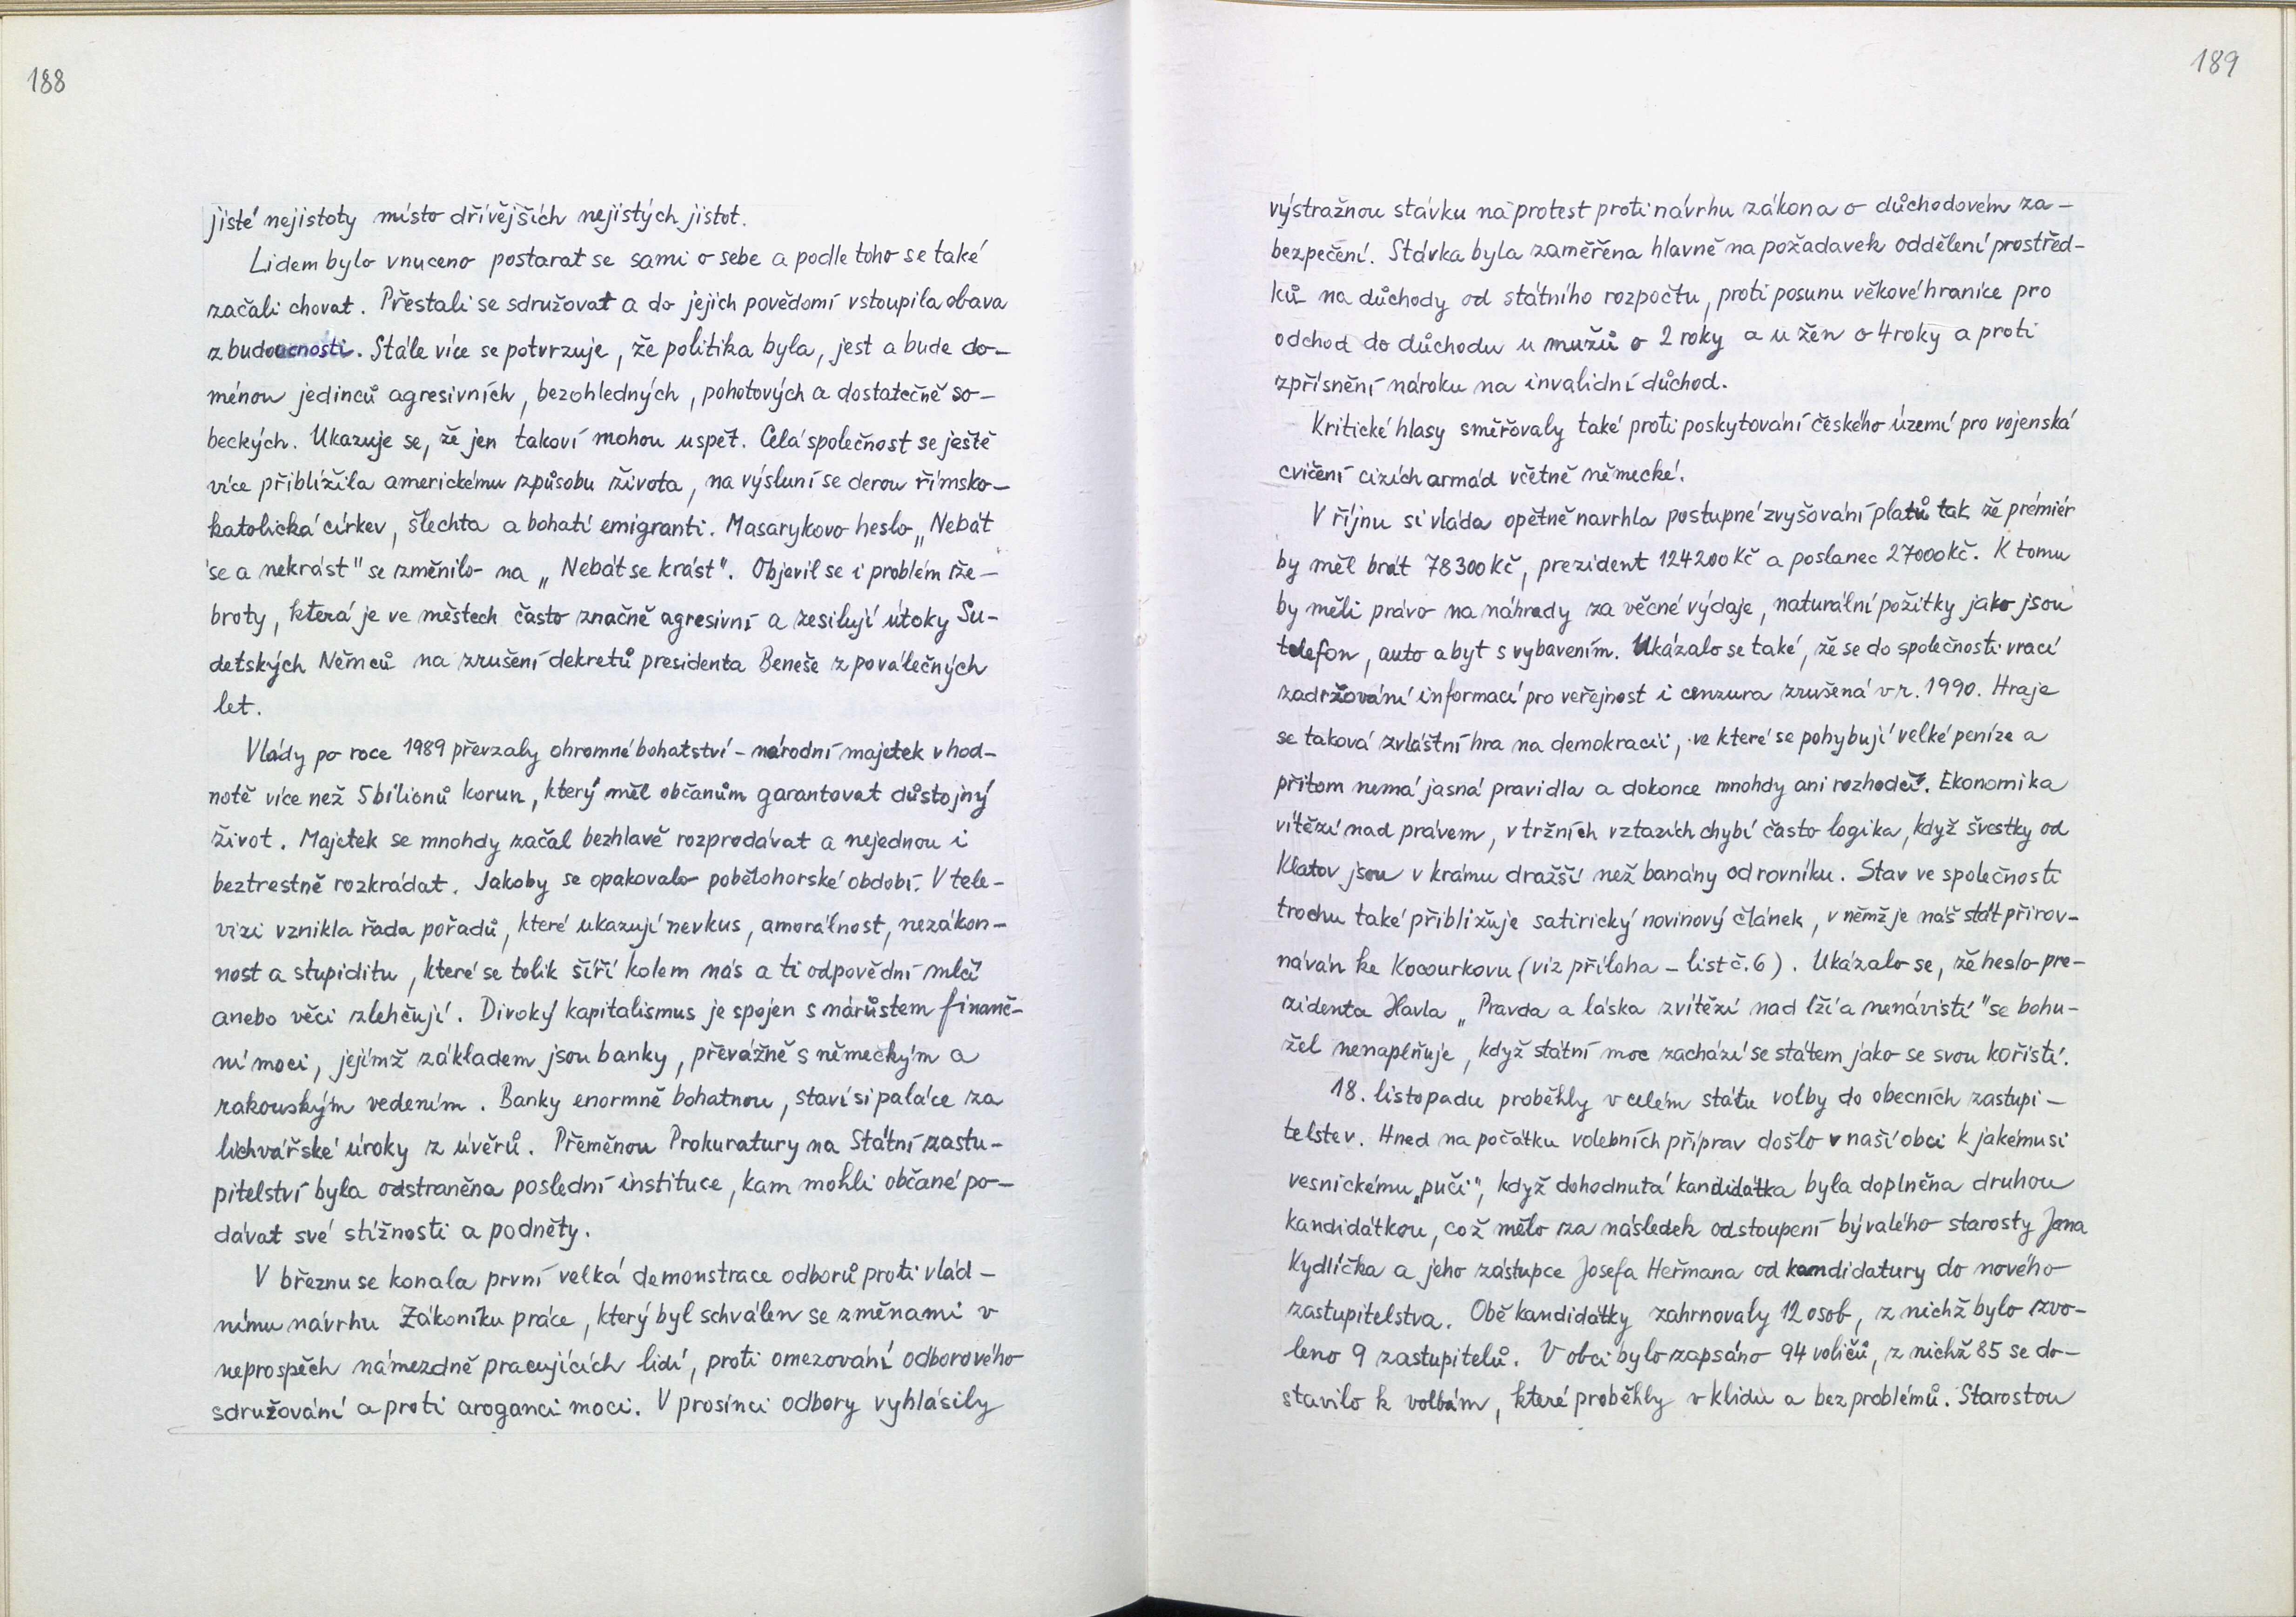 188
jisté nejistoty místo dřívějších nejistých jistot.
Lidem bylo vnuceno postarat se sami o sebe a podle toho se také
začali chovat. Přestali se sdružovat a do jejich povědomí vstoupila obava
z budoucnosti. Stále více se potvrzuje, že politika byla, jest a bude do-
ménou jedinců agresivních, bezohledných, pohotových a dostatečně so-
beckých. Ukazuje se, že jen takoví mohou uspět. Celá společnost se ještě
více přiblížila americkému způsobu života, na výsluní se derou římsko-
katolická církev, šlechta a bohatí emigranti. Masarykovo heslo „Nebát
se a nekrást" se změnilo na „Nebát se krást". Objevil se i problém že-
broty, která je ve městech často značně agresivní a zesilují útoky Su-
detských Němců na zrušení dekretů presidenta Beneše z poválečných
let.
Vlády po roce 1989 převzaly ohromné bohatství - národní majetek v hod-
notě více než 5 bilionů korun, který měl občanům garantovat důstojný
život. Majetek se mnohdy začal bezhlavě rozprodávat a nejednou i
beztrestně rozkrádat. Jakoby se opakovalo pobělohorské období. V tele-
vizi vznikla řada pořadů, které ukazují nevkus, amorálnost, nezákon-
nost a stupiditu, které se tolik šíří kolem nás a ti odpovědní mlčí
anebo věci zlehčují. Divoký kapitalismus je spojen s nárůstem finanč-
ní moci, jejímž základem jsou banky, převážně s německým a
rakouským vedením. Banky enormně bohatnou, staví si paláce za
lichvářské úroky z úvěrů. Přeměnou Prokuratury na Státní zastu-
pitelství byla odstraněna poslední instituce, kam mohli občané po-
dávat své stížnosti a podněty.
V březnu se konala první velká demonstrace odborů proti vlád-
nímu návrhu Zákoníku práce, který byl schválen se změnami v
neprospěch námezdně pracujících lidí, proti omezování odborového
sdružování a proti aroganci moci. V prosinci odbory vyhlásily
189
výstražnou stávku na protest proti návrhu zákona o důchodovém za-
bezpečení. Stávka byla zaměřena hlavně na požadavek oddělení prostřed-
ků na důchody od státního rozpočtu, proti posunu věkové hranice pro
odchod do důchodu u mužů o 2 roky a u žen o 4 roky a proti
zpřísnění nároku na invalidní důchod.
Kritické hlasy směřovaly také proti poskytování českého území pro vojenská
cvičení cizích armád včetně německé.
V říjnu si vláda opětně navrhla postupné zvyšování platů tak že prémiér
by měl brát 78300 Kč, prezident 124200 Kč a poslanec 27000 Kč. K tomu
by měli právo na náhrady za věcné výdaje, naturální požitky jako jsou
telefon, auto a byt s vybavením. Ukázalo se také, že se do společnosti vrací
zadržování informací pro veřejnost i cenzura zrušená v r. 1990. Hraje
se taková zvláštní hra na demokracii, ve které se pohybují velké peníze a
přitom nemá jasná pravidla a dokonce mnohdy ani rozhodčí. Ekonomika
vítězí nad právem, v tržních vztazích chybí často logika, když švestky od
Klatov jsou v krámu dražší než banány od rovníku. Stav ve společnosti
trochu také přibližuje satirický novinový článek, v němž je náš stát přirov-
náván ke Kocourkovu (viz příloha - list č. 6). Ukázalo se, že heslo pre-
zidenta Havla „Pravda a láska zvítězí nad lží a nenávistí" se bohu-
žel nenaplňuje, když státní moc zachází se státem jako se svou kořistí.
18. listopadu proběhly v celém státu volby do obecních zastupi-
telstev. Hned na počátku volebních příprav došlo v naší obci k jakémusi
vesnickému „puči", když dohodnutá kandidátka byla doplněna druhou
kandidátkou, což mělo za následek odstoupení bývalého starosty Jana
Kydlíčka a jeho zástupce Josefa Heřmana od kandidatury do nového
zastupitelstva. Obě kandidátky zahrnovaly 12 osob, z nichž bylo zvo-
leno 9 zastupitelů. V obci bylo zapsáno 94 voličů, z nichž 85 se do-
stavilo k volbám, které proběhly v klidu a bez problémů. Starostou